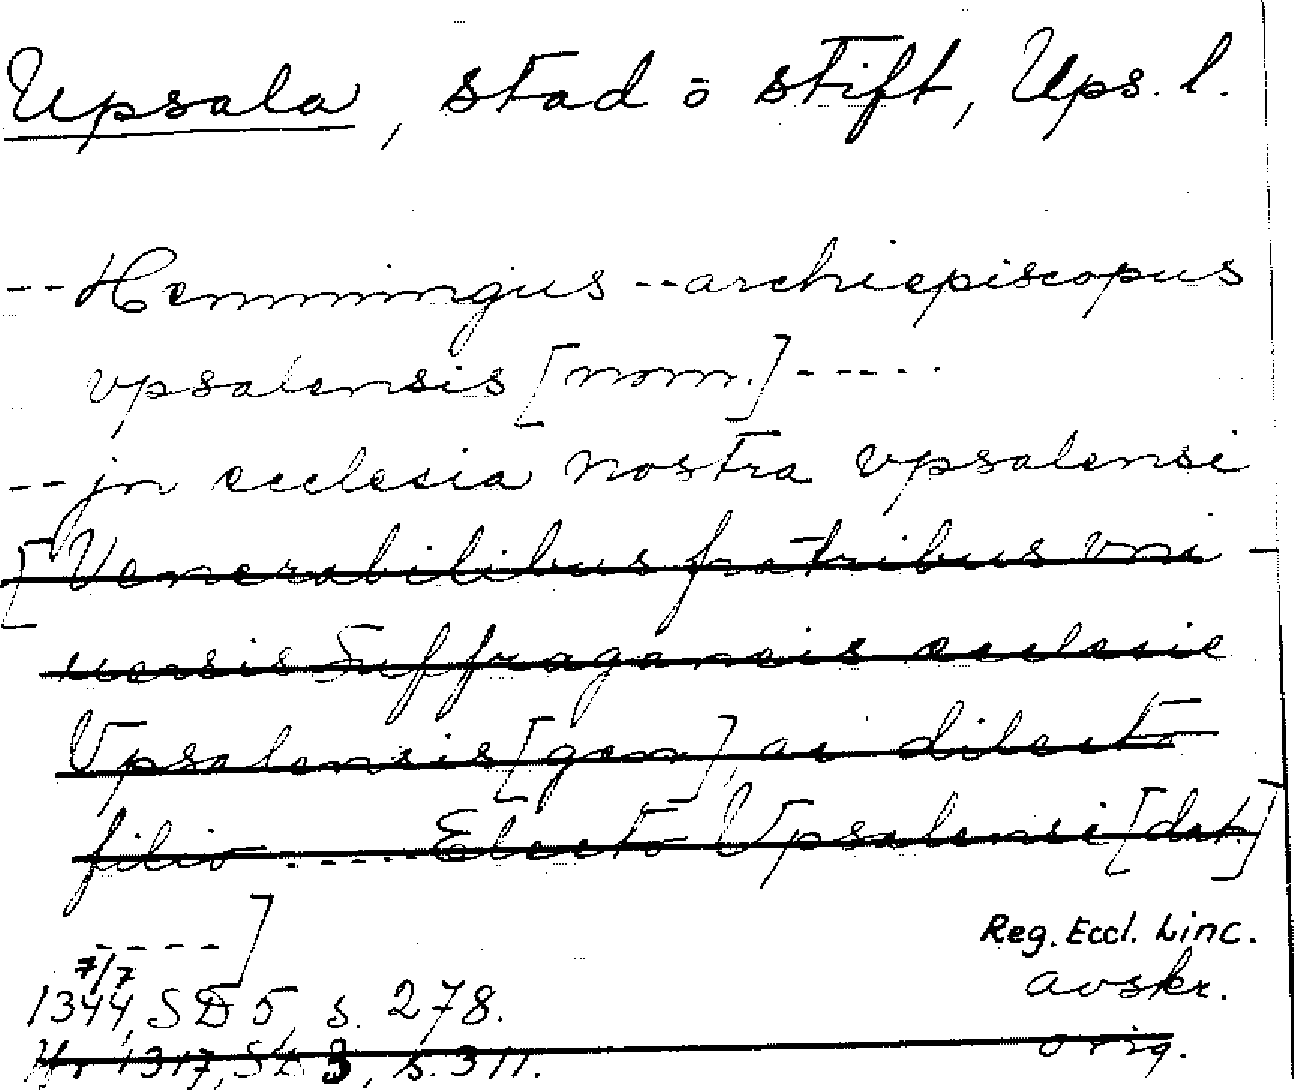 Upsala, stad o stift, Ups. l.
-- Hemmingus -- archiepiscopus
vpsalensis [nom.] -----
-- jn ecclesia nostra vpsalensi
[Venerabilibus fratribus vni-
uersis Suffraganeis ecclesie
Vpsalensis [gen], ac dilecto
filio ..---- Electo Vpsalensi [dat.]
----]
Reg. Eccl. Linc.
7/7
1344, SD 5, s. 278.
avskr.
1317, SD 3, s. 311.
orig.